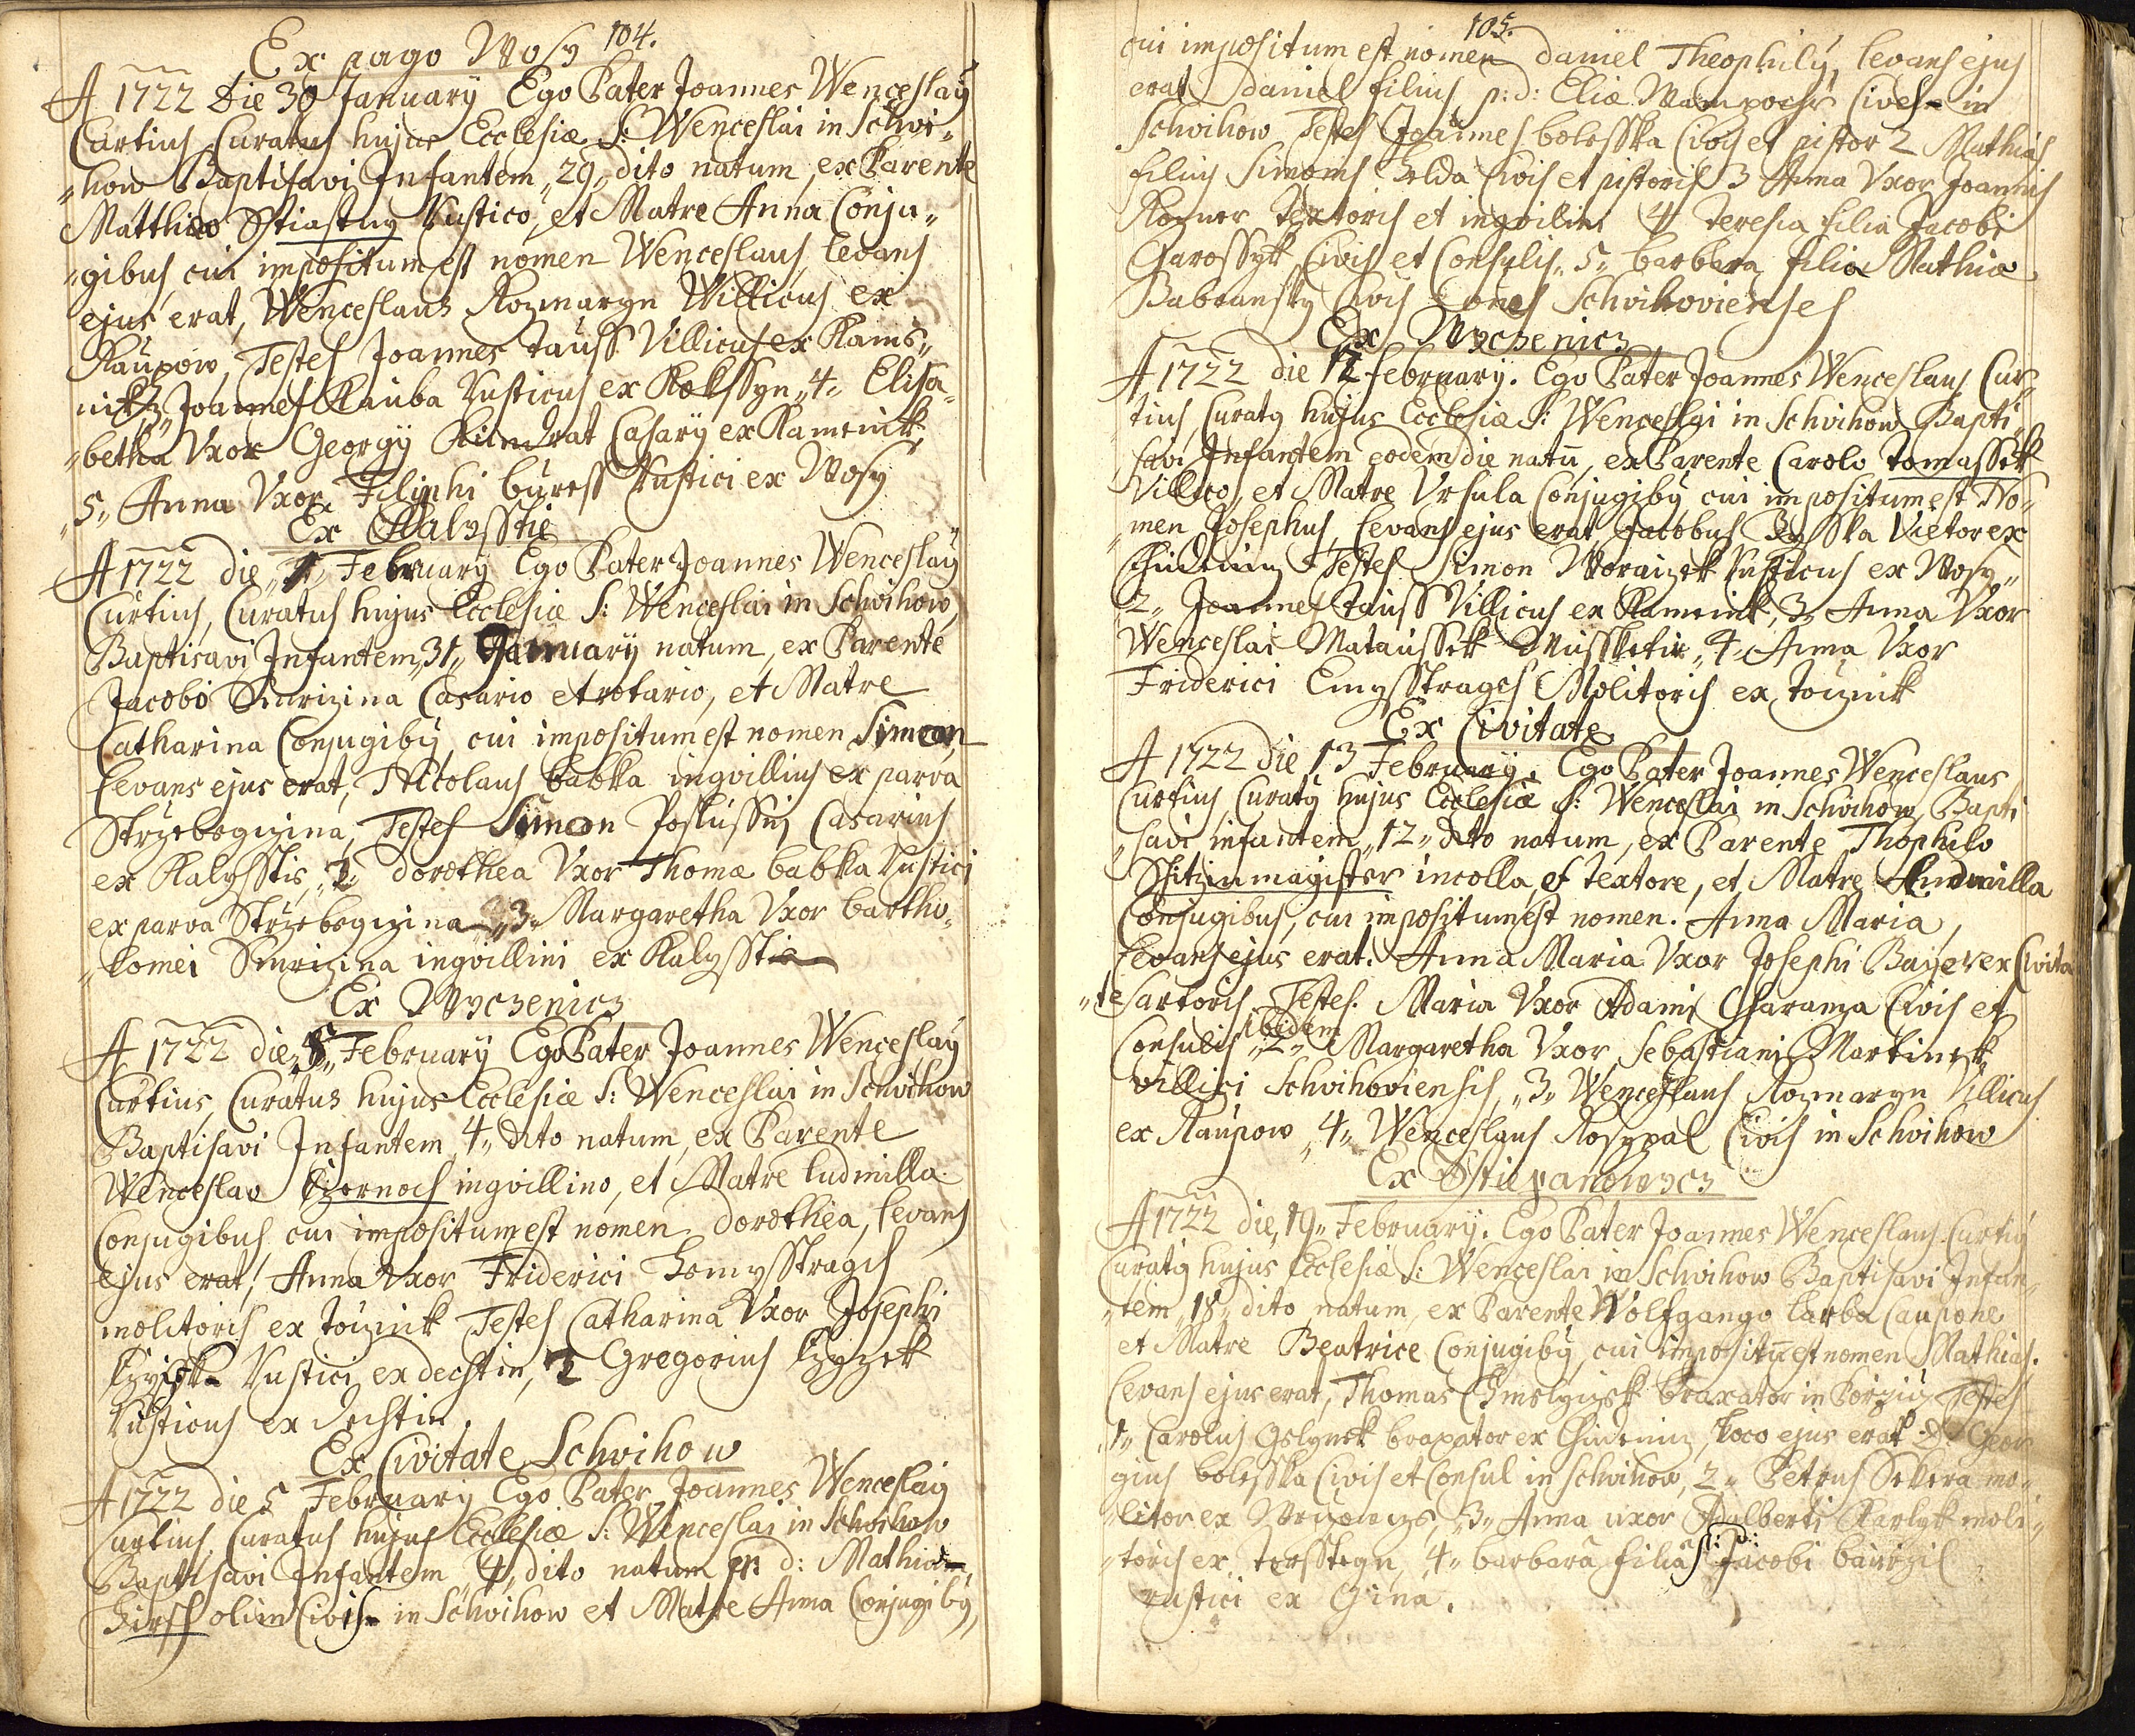 104.
Ex pago Wosy
A 1722 Die 30 January Ego Pater Joannes Wenceslaÿ
Curtius Curatus hujus Ecclesiæ S: Wenceslai in Schwi„
„how Baptisavi Infantem „29„ dito natum, ex Parente
Matthæo Stiastny Rustico, et Matre Anna Conju„
„gibus, cui impositum est nomen Wenceslaus, levans
ejus erat, Wenceslaus Rozmaryn Villicus ex
Kaupow, Testes Joannes Tauss Villicus ex Kame„
Joannes Kauba Rusticus ex „4„ Elisa„
„betha Vxor Georgÿ Casarÿ ex Kamenick,
„5„ Anna Vxor Filiphi buress Rustici ex Wosy
Ex Kalysstie
A 1722 die „1„ February Ego Pater Joannes Wenceslaÿ
Curtius, Curatus hujus Ecclesiæ S: Wenceslai in Schwihow,
Baptisavi Infantem „31„ January natum, ex Parente
Jacobo Casario et rotario, et Matre
Catharina Conjugibÿ, cui impositum est nomen Simeon
levans ejus erat, Nicolaus babka inqvillius ex parva
Strzebegizina, Testes Simeon Poslussnj Casarius
ex Kalysstis, „2„ dorothea Vxor Thomæ babka Rustici
ex parva Strzebegizina „3„ Margaretha Vxor bartho„
„lomei inqvillini ex Kalysstie
Ex Wyczenicz
A 1722 die „5„ February Ego Pater Joannes Wenceslaÿ
Curtius, Curatus hujus Ecclesiæ S: Wenceslai in Schwihow
Baptisavi Infantem „4„ dito natum, ex Parente
Wenceslao Czernoch inqvillino, et Matre ludmilla
Conjugibus cui impositum est nomen dorothea, levans
ejus erat, Anna Vxor Friderici
molitoris ex Touznick Testes Catharina Vxor Josephi
Rustici ex dechtin, 2 Gregorius
Rusticus ex dechtin.
Ex Civitate Schwihow
A 1722 die 5 February Ego Pater Joannes Wenceslaÿ
Curtius, Curatus hujus Ecclesiæ S: Wenceslai in Schwihow
Baptisavi Infantem „4„ dito natum, p: d: Mathiæ
Hirsch olim Civis in Schwihow et Matre Anna Conjugibÿ,
105.
cui impositum est nomen daniel Theophilÿ, levans ejus
erat daniel filius p: d: Eliæ Civis in
Schwihow Testes Joannes bolesska Civis et pistor 2 Mathias
filius Simonis Civis et pistoris 3 Anna Vxor Joannis
textoris et inqvilini 4 Teresia filia Jacobi
Civis et Consulis „5„ barbara filia Mathiæ
Civis omnes Schwihovienses
Ex Wyczenicz
A 1722 die 12 February. Ego Pater Joannes Wenceslaus Cur„
„tius, Curatÿ hujus Ecclesiæ S: Wenceslai in Schwihow Bapti„
„savi Infantem eodem die natū, ex Parente Carolo Tomassek
Villico, et Matre Vrsula Conjugibÿ cui impositum est No„
„men Josephus, levans ejus erat Jacobus Vietor ex
Chudeniz Testes Simon Rusticus ex Wosy„
2„ Joannes Tauss Villicus ex Kamenick, „3„ Anna Vxor
Wenceslai Mataussek „4„ Anna Vxor
Friderici Molitoris ex Touznick
Ex Civitate
A 1722 die 13 February. Ego Pater Joannes Wenceslaus
Curtius Curatÿ hujus Ecclesiæ S: Wenceslai in Schwihow, Bapti„
„savi infantem „12„ dito natum, ex Parente Thophilo
incolla et textore, et Matre Ludmilla
Conjugibus, cui impositum est nomen. Anna Maria,
levans ejus erat. Anna Maria Vxor Josephi Bayer ex Civita
„te sartoris Testes. Maria Vxor Adami Charanza Civis et
Consulis ibidem „2„ Margaretha Vxor Sebastiani Martinek
villici Schwihoviensis, „3„ Wenceslaus Rozmaryn Villicus
ex Kaupow „4„ Wenceslaus Rosypal Civis in Schwihow
Ex Stiepanowycz
A 1722 die „19„ February. Ego Pater Joannes Wenceslaus Curtiÿ
Curatÿ hujus Ecclesiæ S: Wenceslai in Schwihow Baptisavi Infan„
„tem „18„ dito natum, ex Parente Wolfgango Caupone
et Matre Beatrice Conjugibÿ, cui impositū est nomen Mathias.
levans ejus erat, Thomas braxator in Testes
„1„ Carolus braxator ex Chudeniz, loco ejus erat D: Geor
gius bolesska Civis et Consul in Schwihow, 2„ Petrus Sekera mo„
„litor ex „3„ Anna uxor Adalberti moli„
„toris ex „4„ barbara filia p: d: Jacobi
rustici ex